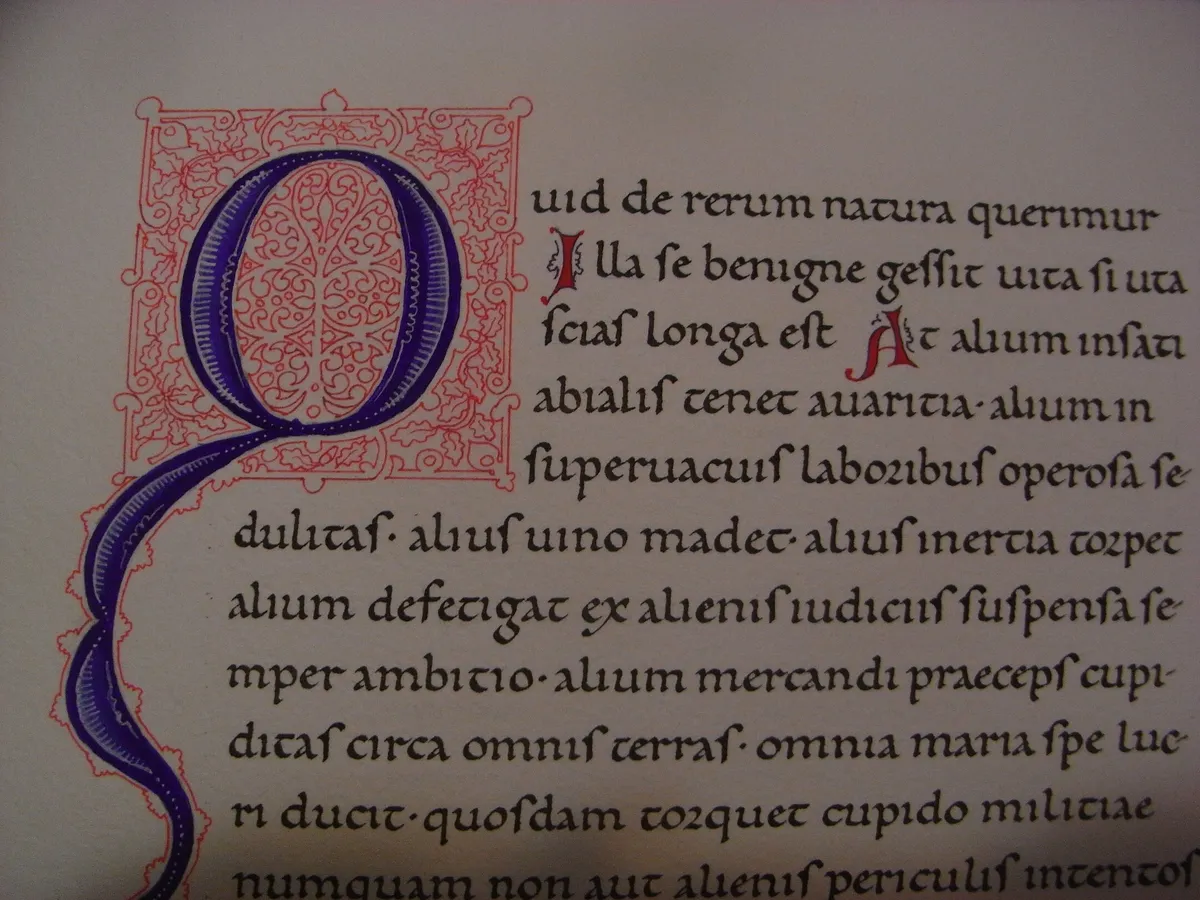 Quid de rerum natura querimur
Illa ſe benigne geſſit uita ſi uta
ſciaſ longa eſt At alium inſati
abialiſ tenet auaritia· alium in
ſuperuacuiſ laboꝛibuſ operoſa ſe-
dulitaſ· aliuſ uino madet· aliuſ inertia toꝛpet
alium defetigat ex alieniſ iudiciiſ ſuſpenſa ſe-
mper ambitio· alium mercandi praecepſ cupi-
ditaſ circa omniſ terraſ· omnia maria ſpe luc-
ri ducit· quoſdam toꝛquet cupido militiae
numquam non aut alieniſ periculiſ intentoſ